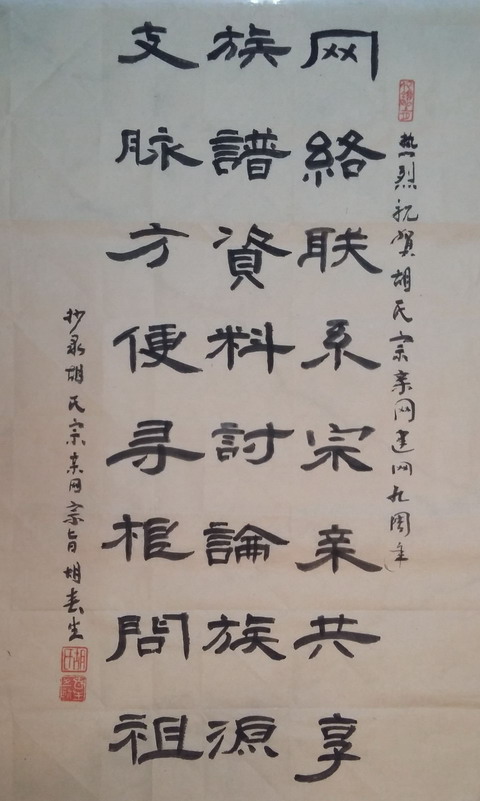 热烈祝贺胡氏宗亲网建网九周年
网絡联系宗亲共享
族譜資料討論族源
支脉方便寻根問祖
抄录胡氏宗亲网宗旨胡春生
胡氏